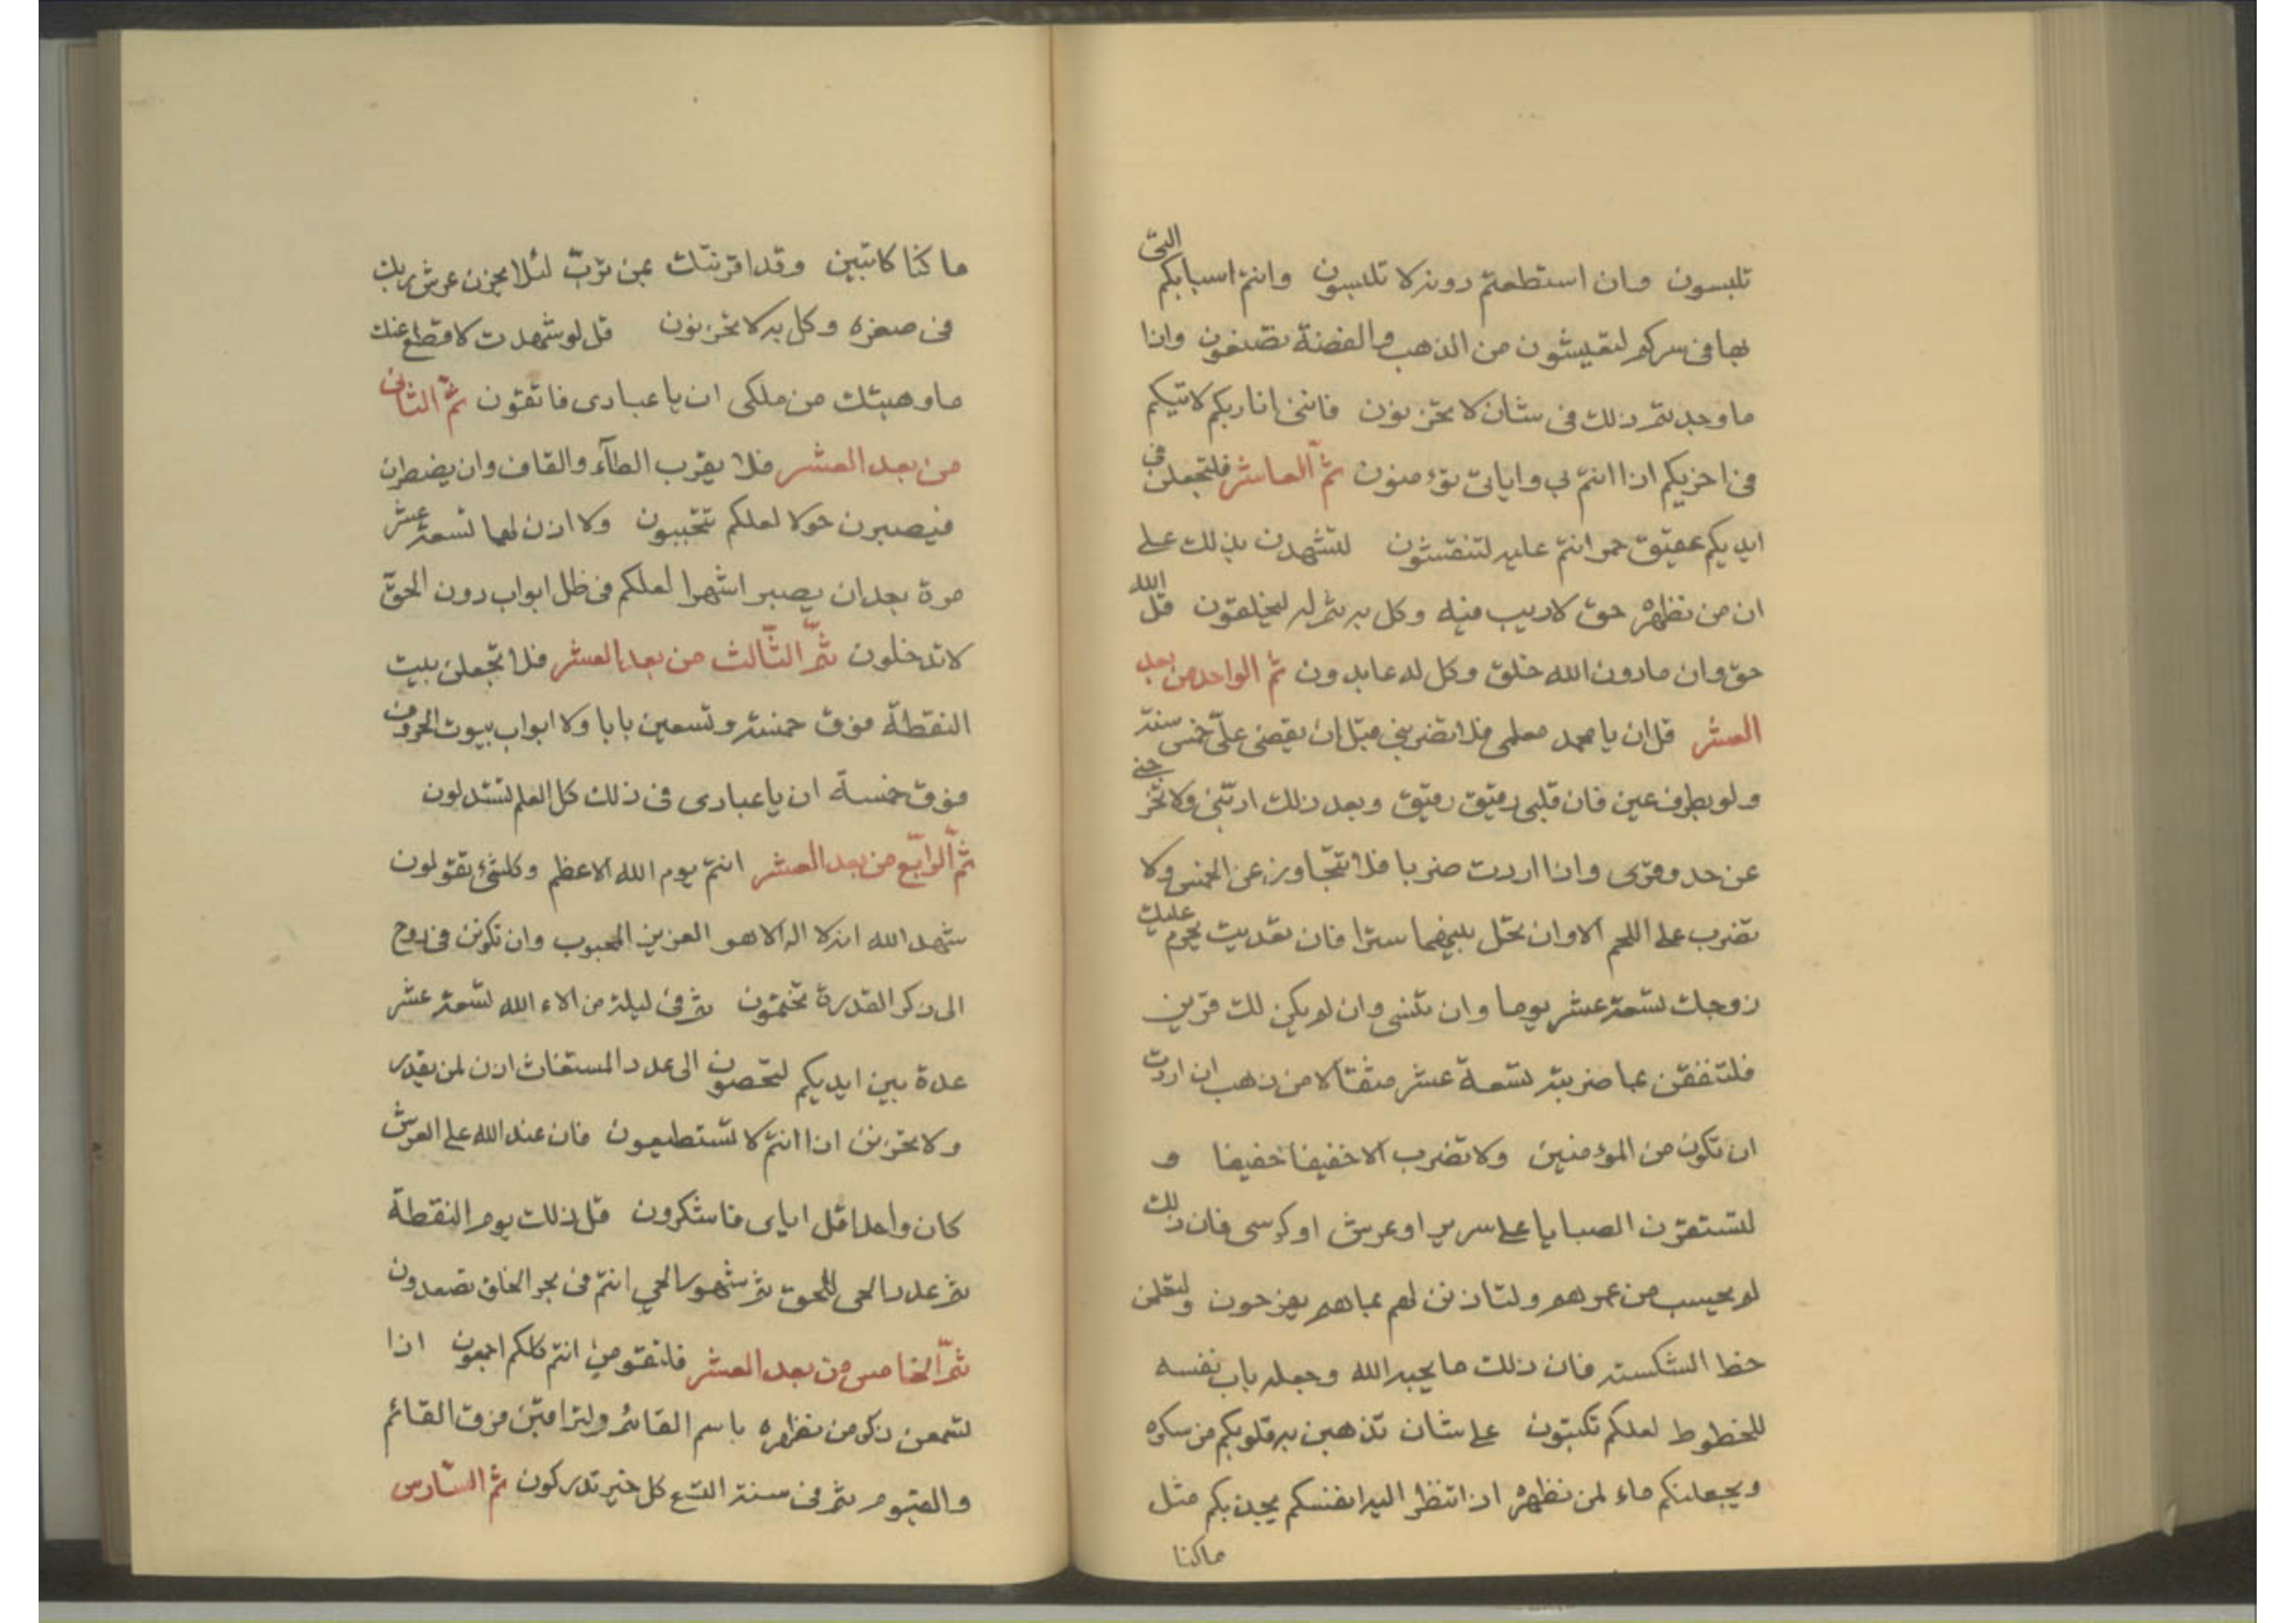 تلبسون وان استطعتم دونه لا تلبسون وانتم اسبابكم التي
بها في سركم لتعيشون من الذهب والفضة تصنعون واذا
ما وجدتم ذلك في شان لا تحزنون فانني انا ربكم لاتيكم
في اخريكم اذا انتم بي واياتي تؤمنون ثم العاشر فلتجعلن في
ايديكم عقيق حمر انتم عليه لتنقشون لتشهدن بذلك على
ان من نظهره حق لا ريب فيه وكل به ثم له ليخلقون قل الله
حق وان ما دون الله خلق وكل له عابدون ثم الواحد من بعد
العشر قل ان يا محمد معلمي فلا تضربني قبل ان يقضى علي خمس سنة
ولو بطرف عين فان قلبي رقيق رقيق وبعد ذلك ادبني ولا تخرجني
عن حد وقري واذا اردت ضربا فلا تتجاوز عن الخمس ولا
تضرب على اللحم الا وان تحل بينهما سترا فان تعديت تحرم عليك
زوجك تسعة عشر يوما وان تنسى وان لم يكن لك قرين
فلتنفقن بما ضربته تسعة عشر مثقالا من ذهب ان اردت
ان تكون من المؤمنين ولا تضرب الا خفيفا خفيفا و
لتستقرن الصبايا على سرير او عرش او كرسي فان ذلك
لم يحسب من عمرهم ولتاذنن لهم بما هم يفرحون ولتعلمن
خط الشكسته فان ذلك ما يحبه الله وجعله باب نفسه
للخطوط لعلكم تكتبون على شان تذهبن به قلوبكم من سكره
ويجعلنكم ماء لمن نظهره اذا تنظر اليه انفسكم يجذبكم مثل
ما كنا
ما كنا كاتبين وقد اقرنتك بمن ترب لئلا يحزن عرش ربك
في صغره وكل به لا تحزنون قل لو شهدت لاقطع عنك
ما وهبتك من ملكي ان يا عبادي فاتقون ثم الثاني
من بعد العشر فلا يقرب الطآء والقاف وان يضطرن
فيصبرن حولا لعلكم تتحببون ولا اذن لهما تسعة عشر
مرة بعد ان يصبر اشهرا لعلكم في ظل ابواب دون الحق
لا تدخلون ثم الثالث من بعد العشر فلا تجعلن بيت
النقطة فوق خمسة وتسعين بابا ولا ابواب بيوت الحروف
فوق خمسة ان يا عبادي في ذلك كل العلم تستدلون
ثم الرابع من بعد العشر انتم يوم الله الاعظم وكلشئ تقولون
شهد الله انه لا اله الا هو العزيز المحبوب وان تكونن في روح
الى ذكر القدرة تختمون ثم في ليلة من الاء الله تسعة عشر
عدة بين ايديكم لتحصون الى عدد المستغاث اذن لمن يقدر
ولا تحزنن اذا انتم لا تستطيعون فان عند الله على العرش
كان واحدا قل اياي فاشكرون قل ذلك يوم النقطة
ثم عدد الحي للحق ثم شهور الحي انتم في بحر الخلق تصعدون
ثم الخامس من بعد العشر فلتقومن انتم كلكم اجمعون اذا
لتسمعن ذكر من نظهره باسم القائم ولتراقبن فرق القائم
والقيوم ثم في سنة التسع كل خير تدركون ثم السادس